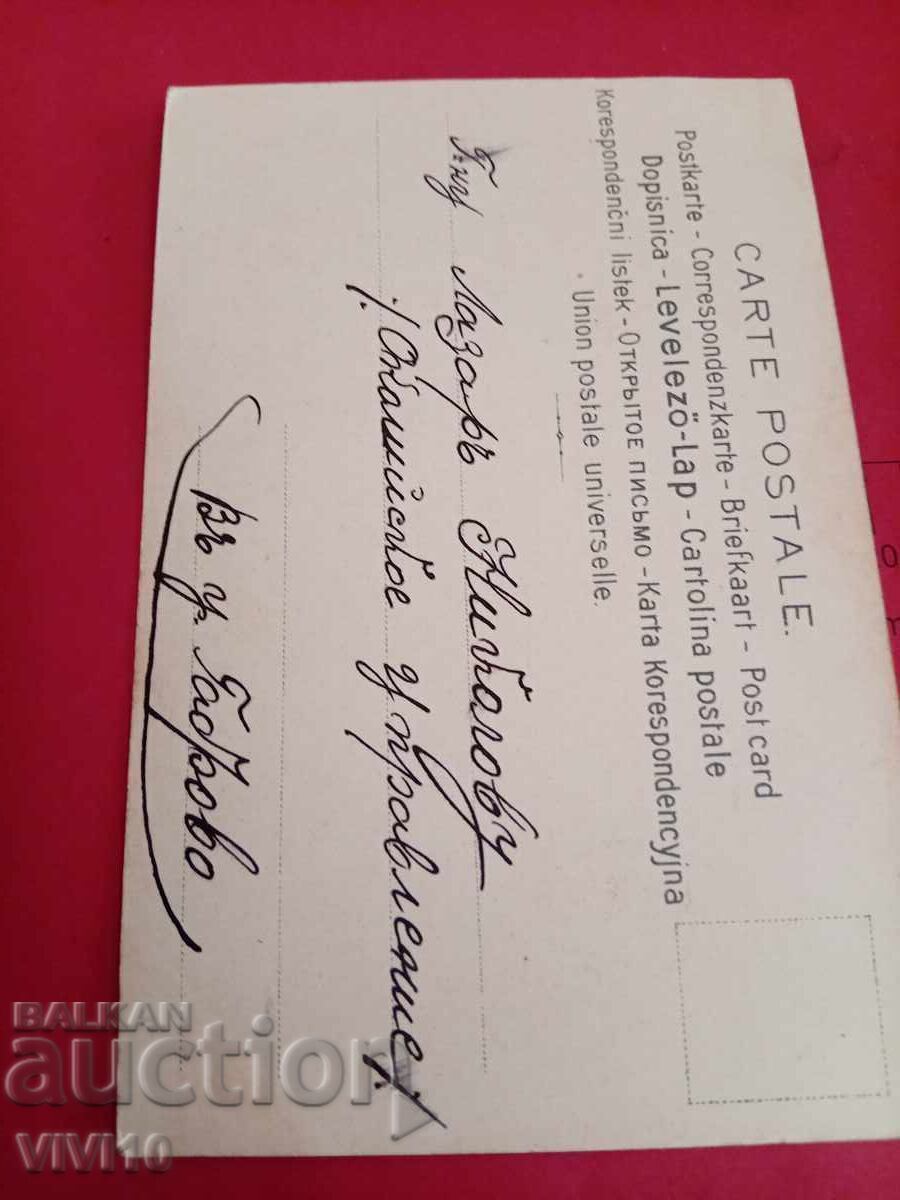 CARTE POSTALE.
Postkarte - Correspondenzkarte - Briefkaart - Postcard
Dopisnica - Levelező-Lap - Cartolina postale
Korespondenčni listek - Открытое письмо - Karta Korespondencyjna
Union postale universelle.
Г-ну Лазаръ Николову
/Окол. управление/
Въ гр. Габрово
BALKAN
auction
VIVI10